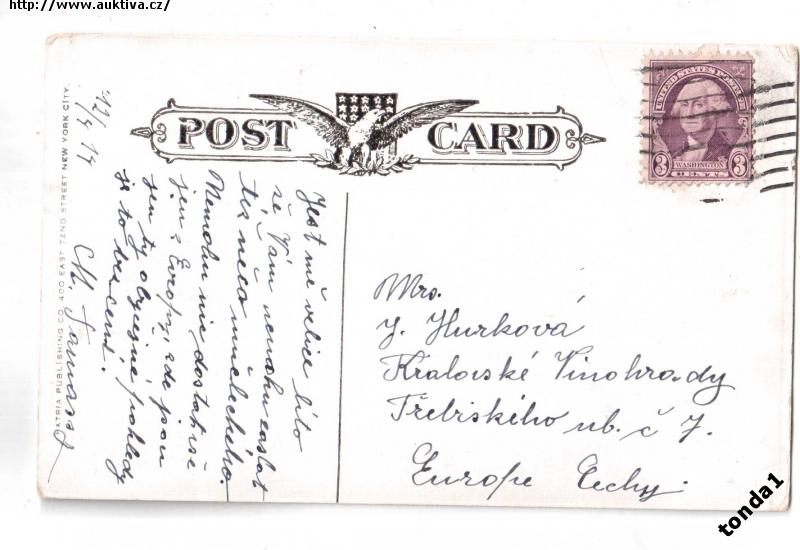 http://www.auktiva.cz/
UNITED STATES POSTAGE
3 WASHINGTON 3
CENTS
POST CARD
12/4 17
Jest mě velice líto
že Vám nemohu zaslat
též něco uměleckého.
Nemohu nic dostat vše
jen z Evropy, zde jsou
jen ty obyčejné pohledy
je to tra cent.
M.
PATRIA PUBLISHING CO. 400 EAST 72ND STREET NEW YORK CITY.
Mrs.
J. Hurková
Kralovské Vinohrady
Třebiského ul. č 7.
Europe Čechy.
tonda1